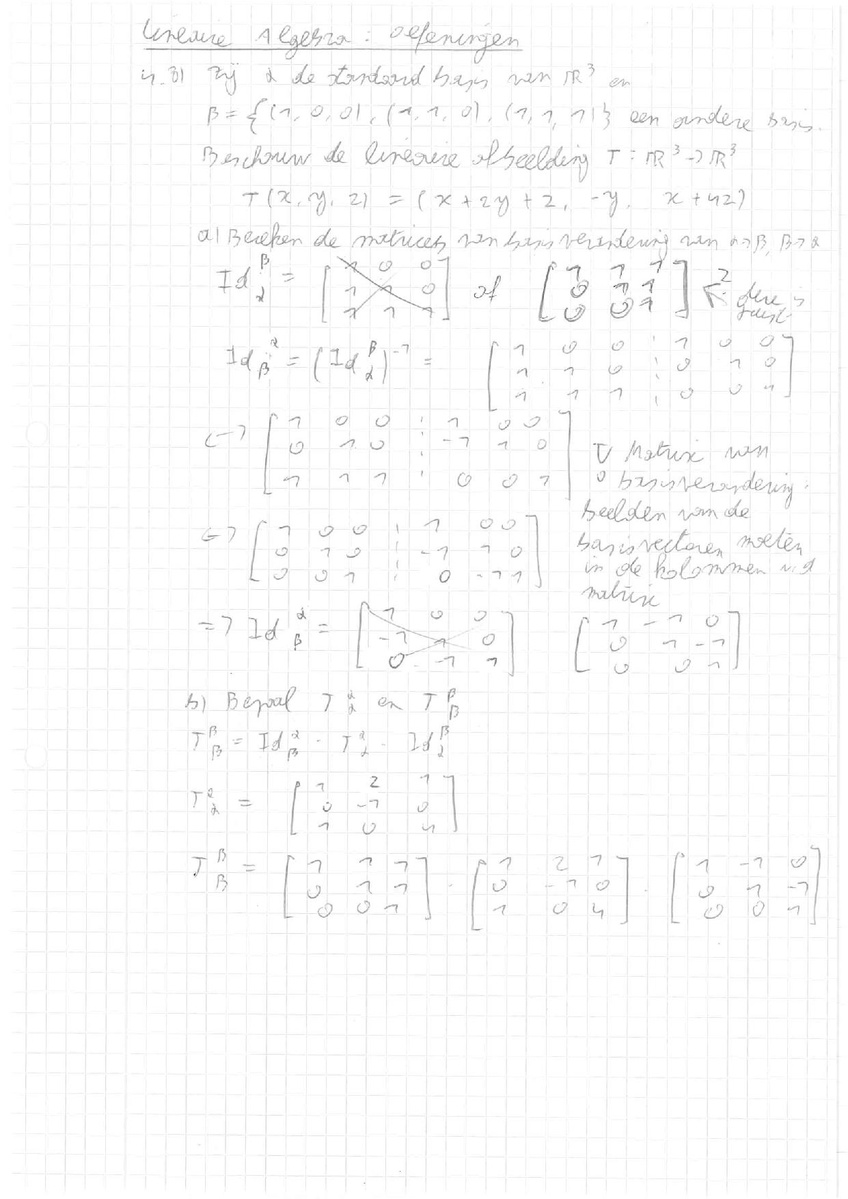 Lineaire Algebra : oefeningen
4.31 Zij α de standaard basis van ℝ³ en
β = {(1, 0, 0), (1, 1, 0), (1, 1, 1)} een andere basis.
Beschouw de lineaire afbeelding T : ℝ³ → ℝ³
T(x, y, z) = (x + 2y + z, -y, x + 4z)
a) Bereken de matrices van basisverandering van α→β, β→α
Id β α = [ 1 0 0 ; 1 1 0 ; 1 1 1 ] of [ 1 1 1 ; 0 1 1 ; 0 0 1 ] ↖ ? deze is juist
Id α β = (Id β α)⁻¹ = [ 1 0 0 ¦ 1 0 0 ; 1 1 0 ¦ 0 1 0 ; 1 1 1 ¦ 0 0 1 ]
<-> [ 1 0 0 ¦ 1 0 0 ; 0 1 0 ¦ -1 1 0 ; 1 1 1 ¦ 0 0 1 ]
Matrix van
basisverandering.
Beelden van de
basisvectoren moeten
in de kolommen v.d
matrix
<=> [ 1 0 0 ¦ 1 0 0 ; 0 1 0 ¦ -1 1 0 ; 0 0 1 ¦ 0 -1 1 ]
=> Id α β = [ 1 0 0 ; -1 1 0 ; 0 -1 1 ] [ 1 -1 0 ; 0 1 -1 ; 0 0 1 ]
b) Bepaal T α α en T β β
T β β = Id α β · T α α · Id β α
T α α = [ 1 2 1 ; 0 -1 0 ; 1 0 4 ]
T β β = [ 1 1 1 ; 0 1 1 ; 0 0 1 ] · [ 1 2 1 ; 0 -1 0 ; 1 0 4 ] · [ 1 -1 0 ; 0 1 -1 ; 0 0 1 ]